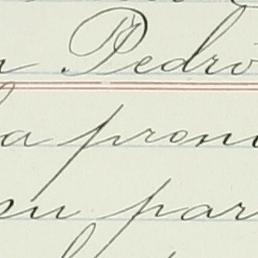 Pedro
la pron
su par